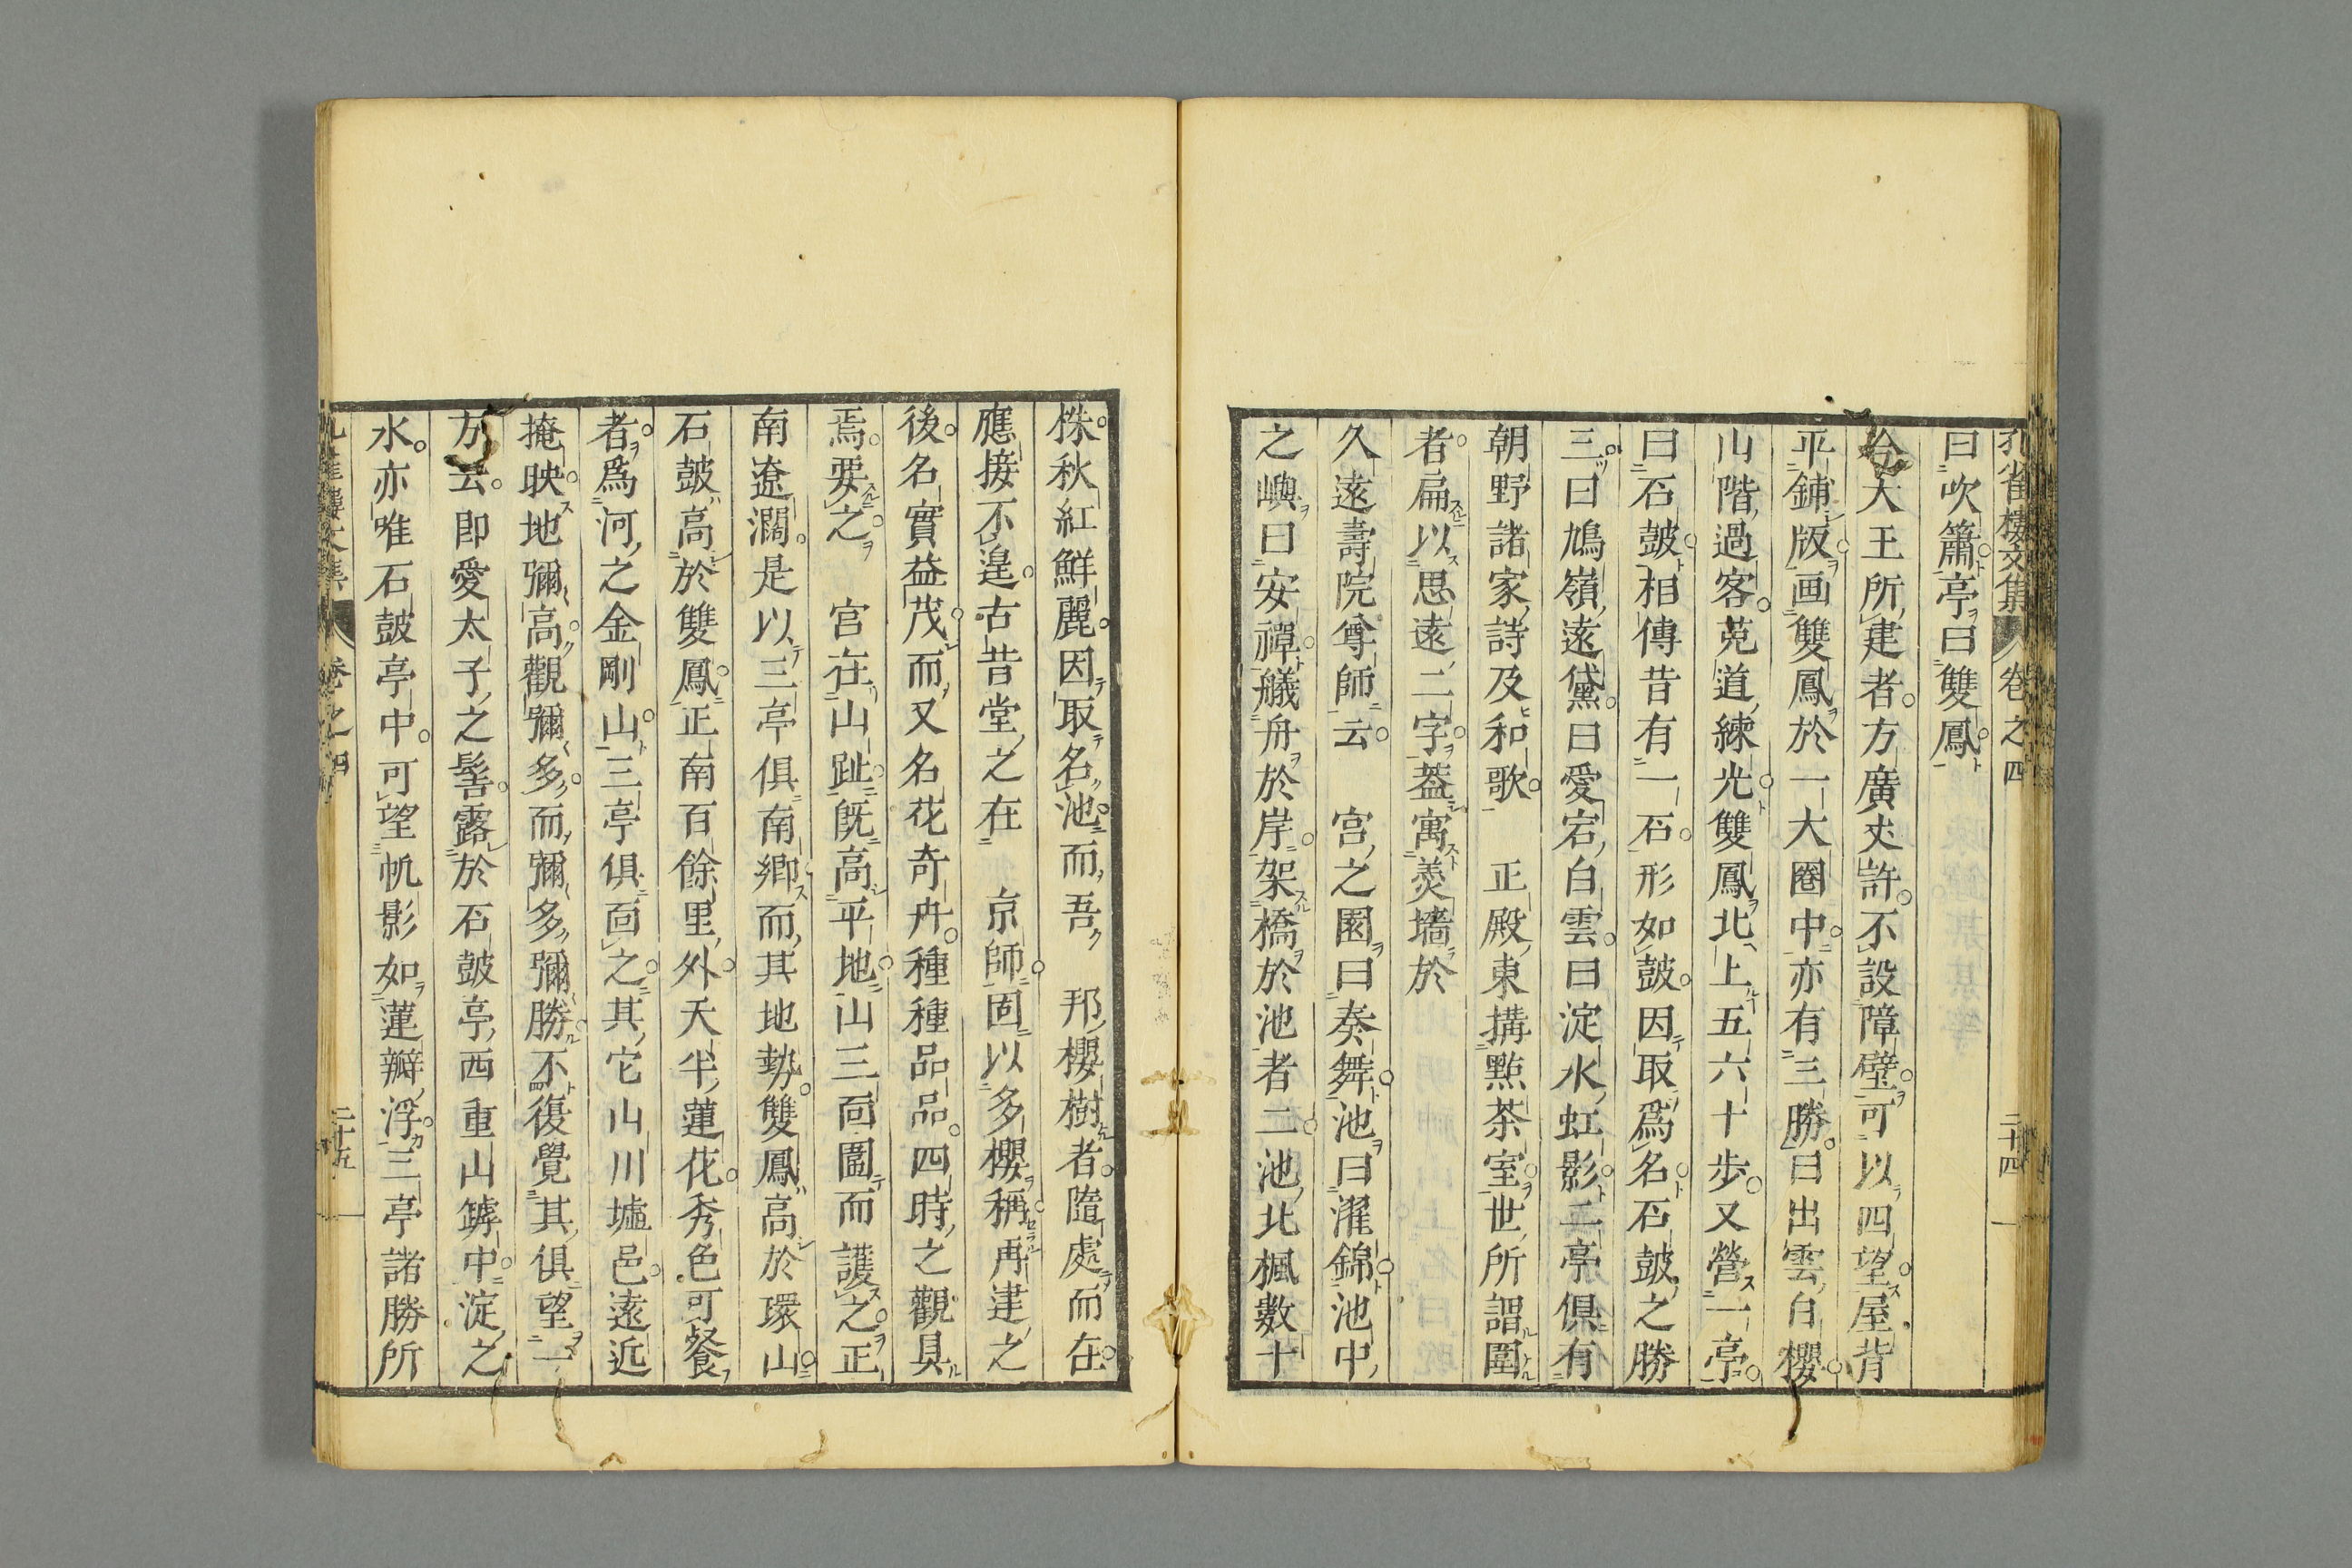 孔雀樓文集 卷之四 二十四
曰吹簫亭曰雙鳳
今大王所建者方廣丈許不設障壁可以四望屋背
平鋪版画雙鳳於一大圈中亦有三勝曰出雲白櫻
山階過客菟道練光雙鳳北上五六十步又營一亭
曰石皷相傳昔有一石形如皷因取爲名石皷之勝
三曰鳩嶺遠黛曰愛宕白雲曰淀水虹影二亭俱有
朝野諸家詩及和歌 正殿東搆點茶室世所謂圍
者扁以思遠二字蓋寓羹墻於
久遠壽院尊師云 宮之園曰奏舞池曰濯錦池中
之嶼曰安禪艤舟於岸架橋於池者二池北楓數十
株秋紅鮮麗因取名池而吾 邦櫻樹者隨處而在
應接不遑古昔堂之在 京師固以多櫻稱再建之
後名實益茂而又名花奇卉種種品品四時之觀具
焉要之 宮在山趾旣高平地山三面圍而護之正
南遼濶是以三亭俱南鄉而其地勢雙鳳高於環山
石皷高於雙鳳正南百餘里外天半蓮花秀色可餐
者爲河之金剛山三亭俱面之其它山川墟邑遠近
掩映地彌高觀彌多而彌多彌勝不復覺其俱望一
方云即愛太子之髻露於石皷亭西重山罅中淀之
水亦唯石皷亭中可望帆影如蓮瓣浮三亭諸勝所
孔雀樓文集 卷之四 二十五